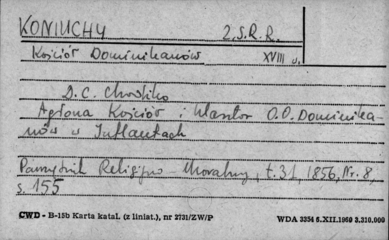 KONIUCHY Z.S.R.R.
Kościół Dominikanów XVIII w.
D. C. Chodźko
Agłona Kościół i klasztor O.O. Dominika-
nów w Inflantach
Pamiętnik Religijno-Moralny, t. 31, 1856, Nr. 8,
s. 155
CWD - B-15b Karta katal. (z liniat.), nr 2731/ZW/P WDA 3354 6.XII.1969 3.210.000